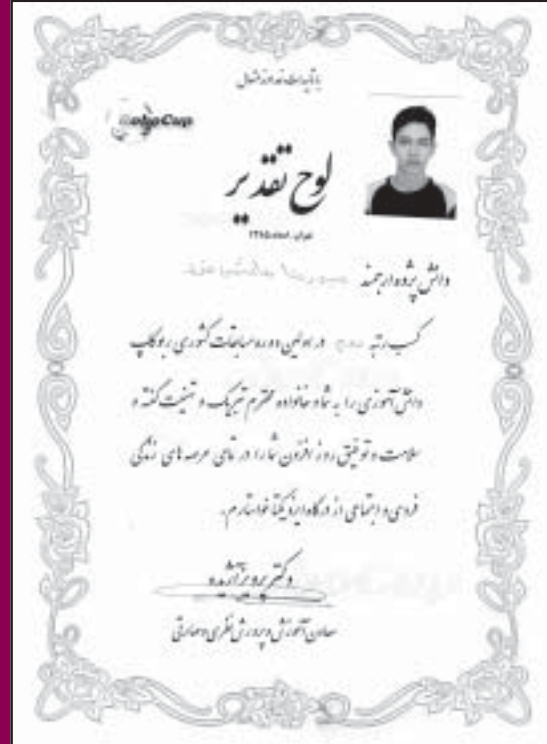 با تأییدات خداوند متعال
RoboCup
لوح تقدیر
تهران، اسفند ۱۳۸۵
دانش پژوه ارجمند
کسب رتبه دوم در اولین دوره مسابقات کشوری ربوکاپ
دانش آموزی را به شما و خانواده محترم تبریک و تهنیت گفته و
سلامت و توفیق روز افزون شما را در تمامی عرصه های زندگی
فردی و اجتماعی از درگاه ایزد یکتا خواستارم.
دکتر پرویز آژیده
معاون آموزش و پرورش نظری و مهارتی